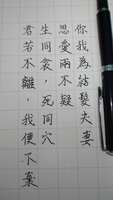 你我為結髮夫妻
恩愛兩不疑
生同衾，死同穴
君若不離，我便不棄